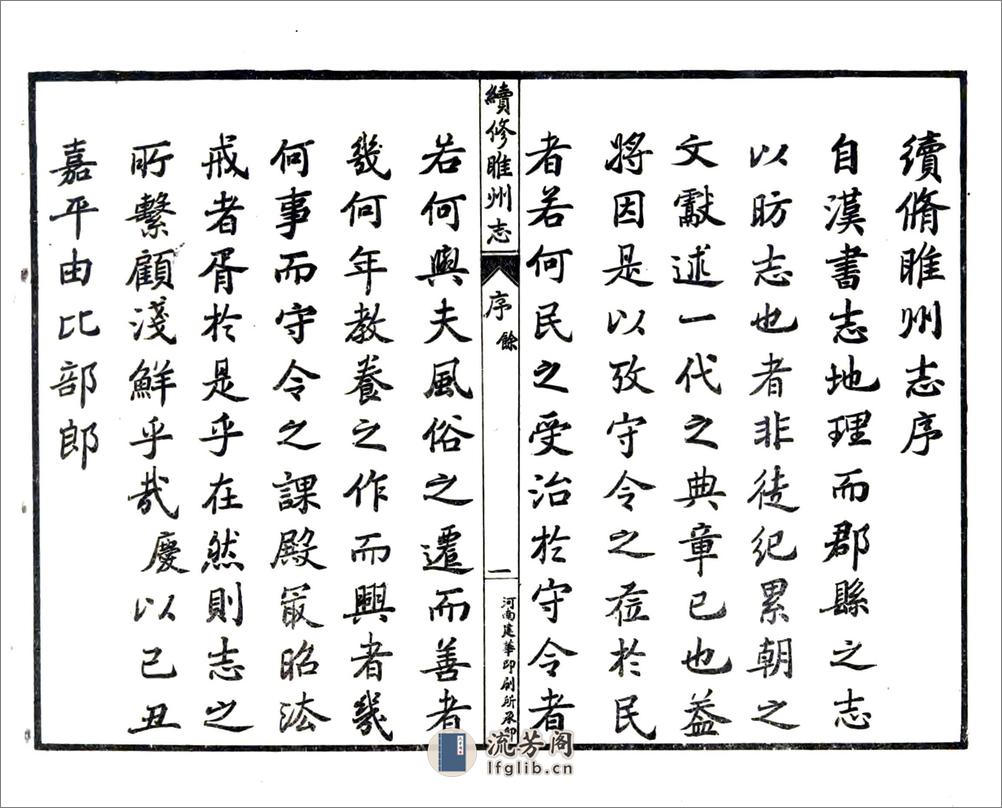 續脩睢州志序
自漢書志地理而郡縣之志
以昉志也者非徒紀累朝之
文獻述一代之典章已也蓋
將因是以攷守令之蒞於民
者若何民之受治於守令者
續修睢州志
序
餘
一
河南建華印刷所承印
若何輿夫風俗之遷而善者
幾何年教養之作而興者幾
何事而守令之課殿最昭法
戒者胥於是乎在然則志之
所繫顧淺鮮乎哉慶以己丑
嘉平由比部郎
流芳阁
lfglib.cn